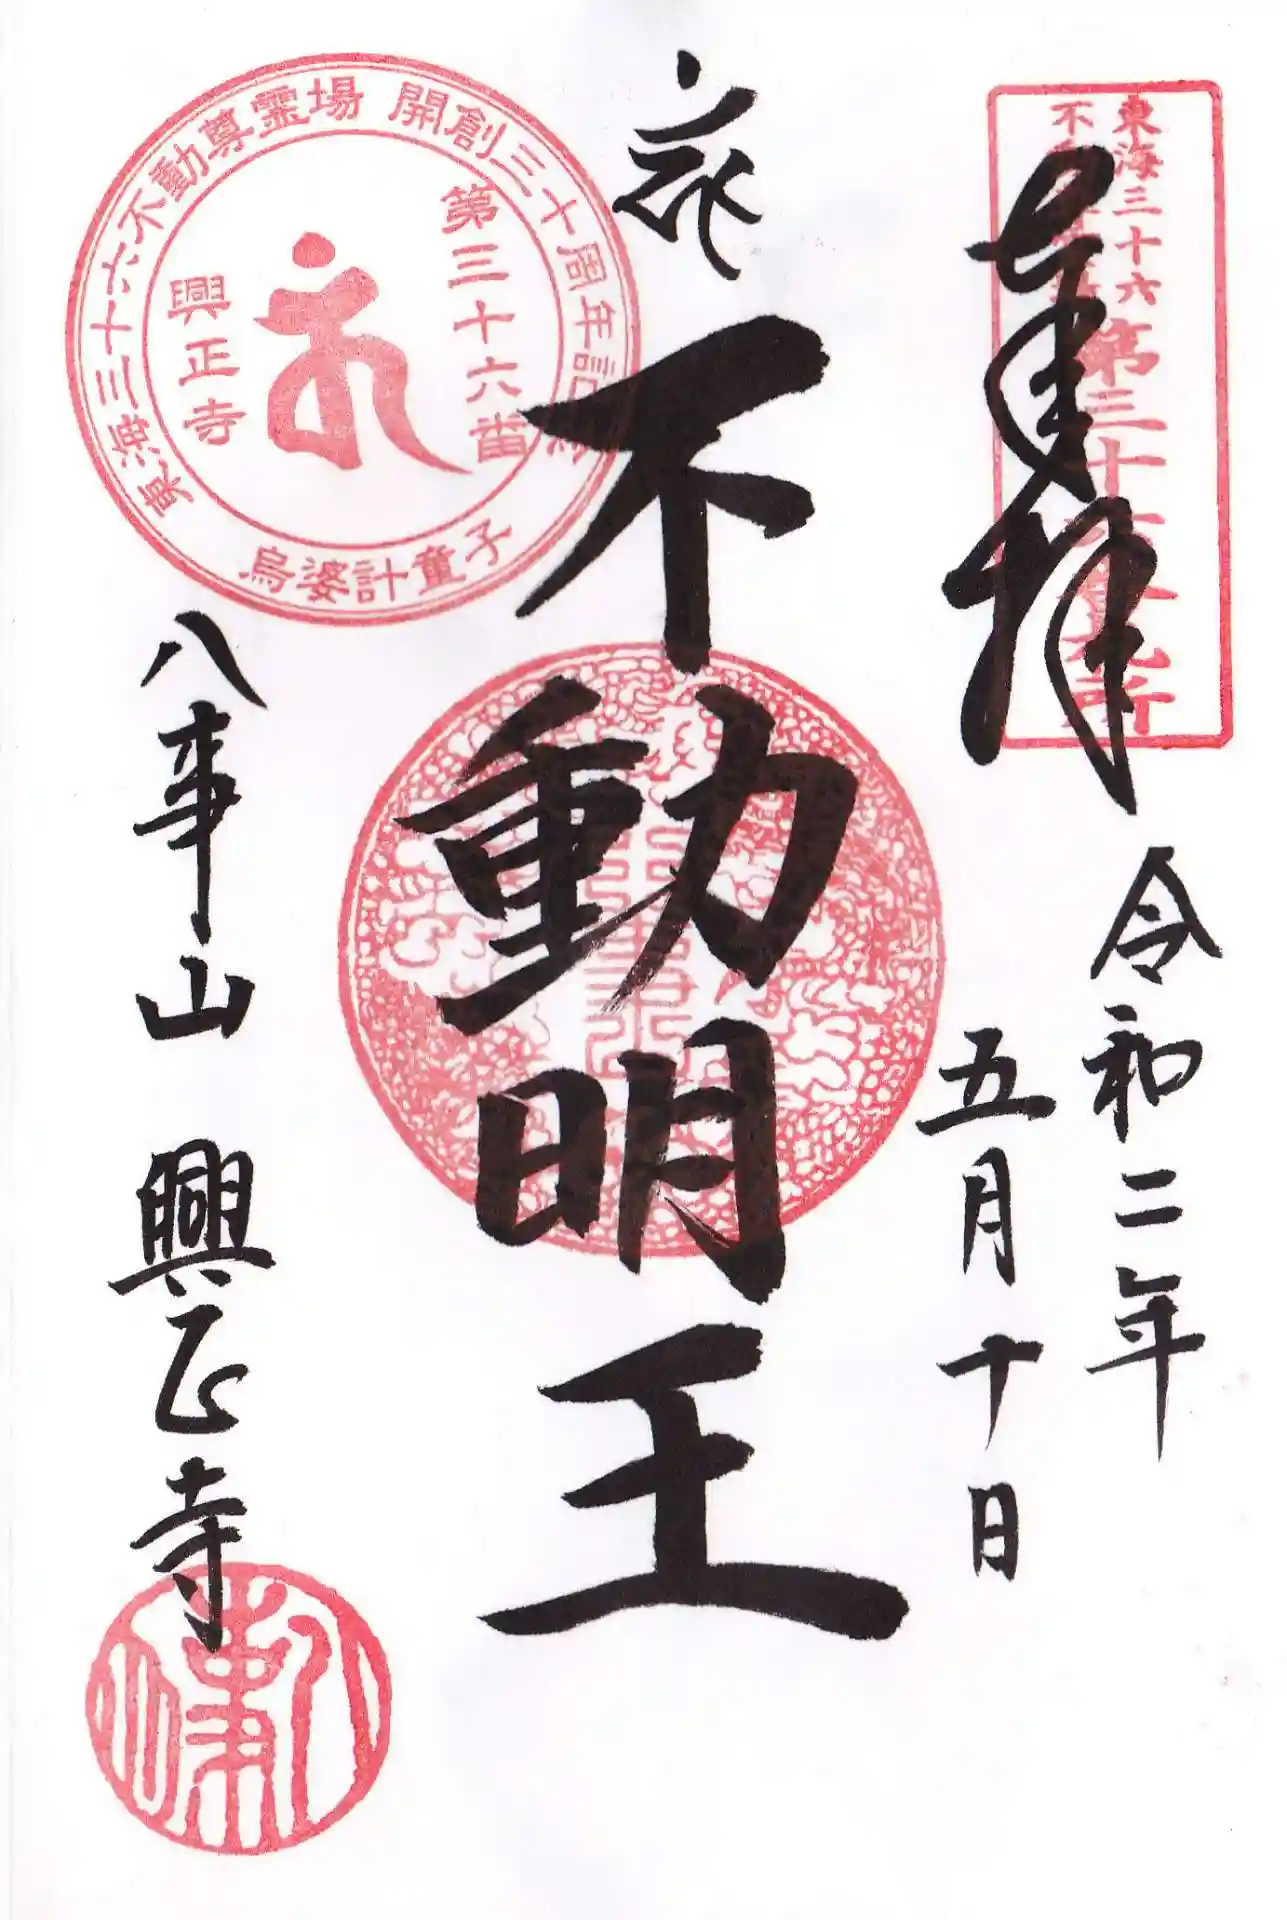 東海三十六
不動尊霊場
第三十六番札所
奉拝
令和二年
五月十日
不動明王
東海三十六不動尊霊場 開創三十周年記念
第三十六番
興正寺
烏婆計童子
八事山 興正寺
八事山